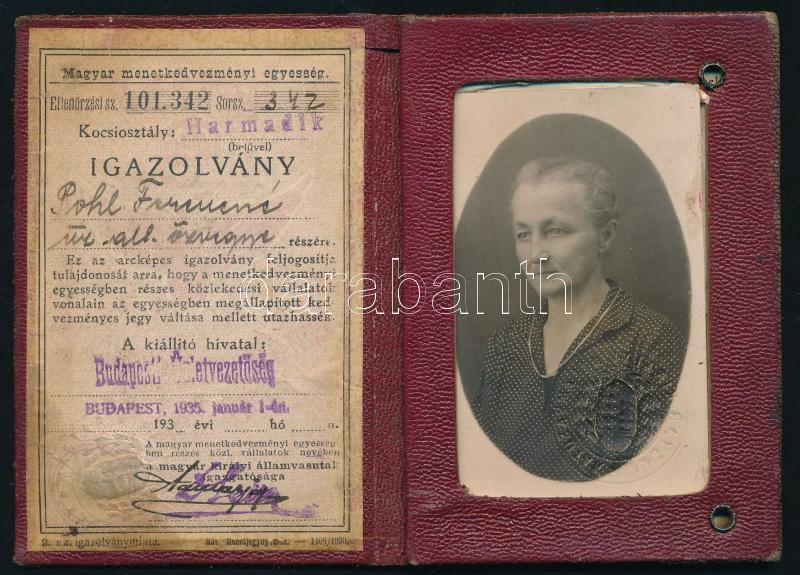 Magyar menetkedvezményi egyesség.
Ellenőrzési sz. 101.342 Sorsz. 342
Kocsiosztály: Harmadik
(betűvel)
IGAZOLVÁNY
Pohl Ferencné
özvegye részére.
Ez az arcképes igazolvány feljogosítja
tulajdonosát arra, hogy a menetkedvezmény
egyességben részes közlekedési vállalatok
vonalain az egyességben megállapított ked-
vezményes jegy váltása mellett utazhassék.
A kiállító hivatal:
Budapesti Üzletvezetőség
BUDAPEST, 1935. január 1-én.
193 évi hó n.
A magyar menetkedvezményi egyesség-
ben részes közl. vállalatok nevében
a magyar királyi államvasutak
igazgatósága
2. sz. igazolványminta. 1166/1930.
darabanth